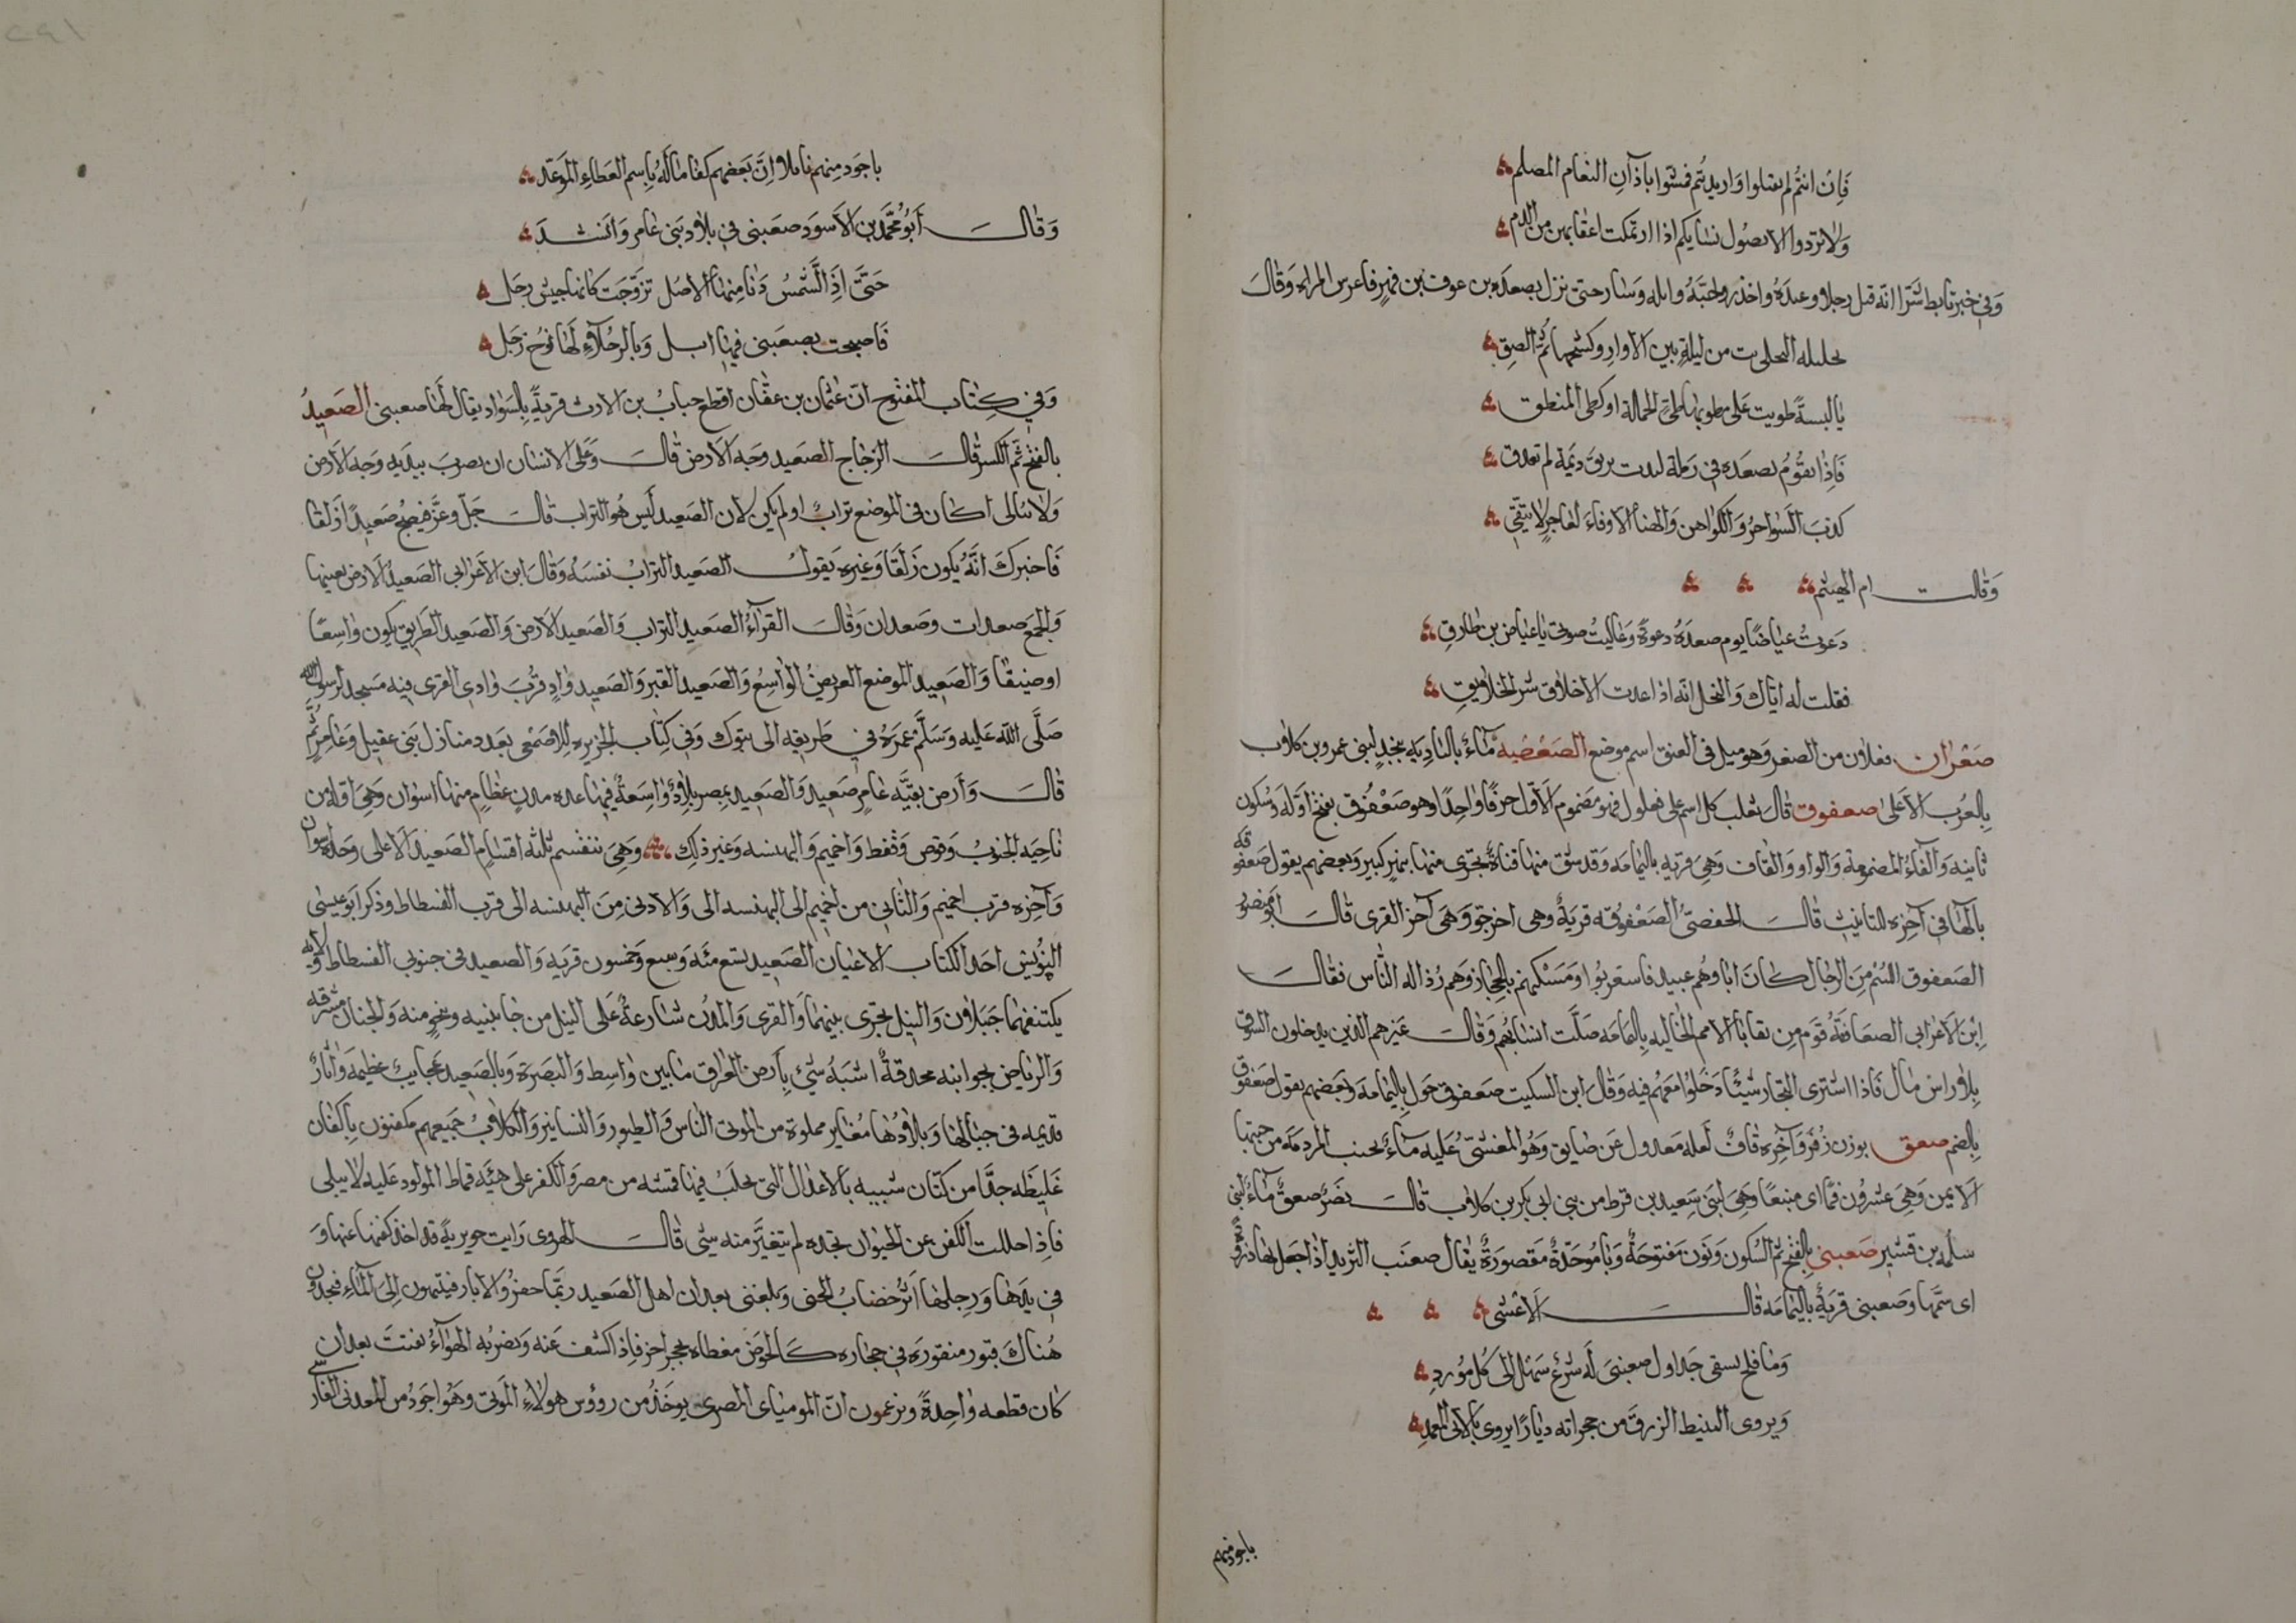 فَاِن انتُم لم تقتلوا واريدتُم فمشّوا بآذآنِ النعَام المصلم
وَلا تردوا الا فضُول نسَايكم اذا ارتمَلت اعقابهن من الدم
وَفي خبر تابط شَرّا انّه قتل رجلا وعبدَهُ واخذ زوجتَهُ وابله وَسَار حتى نزل بصعدَه بن عوف بن فهرٍ فاعرس المراه وَقالَ
بحليله البجلى بت من ليلةٍ بين الازارِ وكشحها ثُمّ الصقِ
يا لبسةً طويت عَلى مطويها طىّ الحمالة او كطى المنطق
فَاِذا تقُومُ بصعدهٍ في رَملة لبدت بريّق ديمَة لم تغدق
كذبَ السَواحرُ وَالكواهن وَالهنا ألا وفاءَ لعَاجزٍ لا يتقي
وَقالت ام الهيثم
دَعوتُ عياضًا يوم صعدَةَ دعوةً وَعَاليتُ صوتى يا عياض بن طارقِ
فقلت له اياك وَالبخل انّه اذا عدت الاخلاق شر الخلايقِ
صَعْرَان فعلان من الصعر وَهو ميل فى العنق اسم موضع الصَعْصَبيه مَاءٌ بالبَادِيَهِ بنجدٍ لبنى عمرو بن كلاب
بالعُرب الاَعلىٰ صعفوق قالَ ثعلب كل اسم على فعلول فهو مَضموم الاَوّل حرفًا وَاحِدًا وهو صَعْفُوق بفتح اوّله وَسُكون
ثانيه وَالفاءُ المضمومة وَالواو وَالقاف وَهِيَ قريه باليَمامَه وَقد شُق منها قناةٌ تجرى منها بنهرٍ كبير وَبعضهم يقول صَعفوقه
بالهآءِ في آخِرِهِ للتانيث قالَ الحفصىُّ الصَعْفُوقه قريَةٌ وهى اخر جوّ وَهىَ آخر القرى قالَ ابو منصور
الصَعفوق اللئيمُ مِنَ الرِجال كانَ اباوهم عبيد فاستعربُوا وَمَسْكنهم بالحِجَاز وَهم رُذاله النَّاس فقالَ
اِبْن الاَعرَابى الصعَافقَةُ قَوم مِن بقايَا الامم الخاليه بِاليمامَه ضلّت انسَابُهم وَقالَ غيرهم الذين يدخلون السُّوق
بِلا رَاس مَال فَاذا اشترى التجَار شَيْئًا دَخلوُا معهُم فيه وَقالَ ابن السكيت صَعفوق حَول بِاليَمامَه وَبَعضهم يقول صُعفوق
بِالضم صعق بوزن زُفَرَ وَآخره قافٌ لَعله معدول عَن صَايق وَهُو المغشىّ عَلَيه مآءٌ بجنب المردمَه من جنبها
الاَيمن وَهِيَ عشرُون فمًا اى منبعًا وَهِيَ لبَنى سَعيد بن قرط من بني ابي بكر بن كلاب قالَ نصَرٌ صعقٌ مَاءٌ لبني
سَلمَه بن قشير صَعبنى بالفتح ثمّ السُكون وَنون مَفتوحَةٌ وَبا مُوَحّدَةٌ مَقصورَةٌ يقال صعنَب الثريد اذا جعل لها ذروة
اى سنّمها وَصعبنى قريَةٌ باليَمامَه قالَ الاَعشى
وَمَا فلج يسقى جَداول صعبنىَ لَه شرَع سَهْل الىٰ كُل مَوْردِ
وَيروى النبيط الزرق من حجراته ديَارًا يروى بالآتى المعمدِ
باجود منهم
باجَود مِنهم نائلا اِنّ بَعضهم كفا مَا لَهُ باِسم العَطاءِ المَوعّد
وَقالَ أَبُو مُحَمّد بن الاَسوَد صَعَبنى في بلاد بَنى عَامر وَانشدَ
حَتىَّ اذَا الشَمسُ دَنا مِنها الاُصُل تزوّجَت كانها جيش رجَل
فَاصبحت بصعبَنى فيهَا ابل وَبالرحُلاءِ لَهَا نوح زجَل
وَفي كِتَاب المفتوح انّ عُثمان بن عفّان اقطع خبابُ بن الارت قريةً بِالسَواد يقال لَها صعبنى الصَعيدُ
بالفتح ثمّ الكسر قالَ الزجاج الصَعيد وَجه الاَرض قالَ وَعَلى الانسَان ان يضربَ بيديه وَجه الاَرض
وَلا يبَالى اكَان فى الموضع ترَابٌ او لم يَكن لان الصَعيد لَيس هُو التراب قالَ جَلّ وعَزّ فيصْبحُ صَعِيدًا زَلقا
فَاخبركَ انَّهُ يكون زَلَقَا وَغيره يَقولُ الصَعيد الترَابُ نفسَهُ وَقالَ ابن الاَعرابي الصَعيدُ الاَرض بعينها
وَالجمعُ صَعدات وصَعدان وَقالَ القرَآءُ الصَعيد التراب وَالصَعيد الاَرض وَالصَعيد الطَريق يكون وَاسِعًا
او ضيقًا وَالصَعِيد الموضع العريضُ الوَاسِعُ وَالصَعيد القبر وَالصَعيد وَادٍ قرُبَ وَادى القرى فيه مَسجد لرسول الله
صَلَّى الله عَليه وَسَلَّم عَمرَهُ في طَريقِه الى تبوك وَفي كِتَاب الجزيره لِلاصمعى بَعد منازل بَنى عقيل وَعَامر ثُمَّ
قالَ وَأرض بقيَّه عَامرٍ صَعيد وَالصَعيد بمصر بلادٌ وَاسِعَةٌ فيهَا عِدهُ مدنٍ عِظامٍ منهَا اسوان وَهِيَ اوله من
نَاحِيَه الجنوب وَقوص وَقفط وَاخميم وَالبهنسه وَغير ذلِك وَهِيَ تنقسم ثلثه اقسَامٍ الصَعيد الاَعلى وَحدهُ اسوان
وَآخِره قرب اخميم وَالثانى من اخميم الى البهنسه الى وَالادنى مِنَ البهنسه الى قرب الفسطاط وذكر ابو عيسَى
النويس احَد الكتاب الاعيان الصَعيد تسع مئه وَسبع وَخمسون قريه وَالصعيد فى جنوبي الفسطاط ولايه
يكتنفهَا جَبَلان وَالنيل يجرى بينهَما وَالقرى وَالمدُن شارعةٌ عَلى النيل من جَانبيه ونحوٍ منه وَالجنان مشرقه
وَالرياض بجوانبه محدقةٌ اشبهُ شيء بِأرض العراق مَا بين وَاسِط وَالبَصرَة وَبالصَعيد عجايبُ عَظيمَه وَاثَارٌ
قديمه فى جبَالهَا وَبلادُهَا مغَاير مملوة من الموتى النَاس وَالطيور وَالنسانير وَالكلابُ جَميعهم مكفنون بِاكفان
غَلِيظه جدًّا من كتّان شبيه بَالاعْدال التى يجلَبُ فيهَا قسته من مصر وَالكفر على هيئَه قماط المولود عَليه لا يبلى
فاذا حللت الكفن عن الحيوان تجده لم يتغيَّر منه شى قالَ الهروى رَايت جويريةً قد اخذ كفنهَا عنهَا وَ
في يدها وَرجلها اثرُ خضابُ الحنى وَبلغنى بعدان اهل الصَعيد ربّمَا حفرُوا الابار فينتهون اِلىَ المَاءِ فيجدون
هُناكَ قبور منقورَه في حجَاره كَالحَوض مغطاه بحجر اخر فاِذا كشف عَنه وَيضربُه الهوَآءُ تفتتَ بعدان
كان قطعه وَاحِدةً ويزعمون انّ الموميَاى المصرىَ يوخَذُ من رؤوس هولاءِ المَوتى وَهُو اجَودُ من المعدنى الفارسى